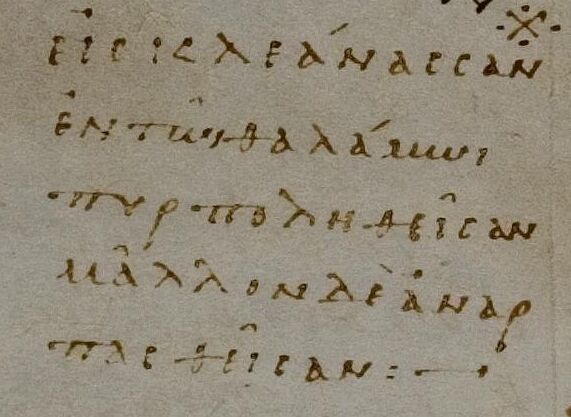 εἰς κλεάνασσαν
ἐν τῶι θαλάμωι
πυρποληθεῖσαν
μᾶλλον δὲ ἀναρ
πασθεῖσαν :